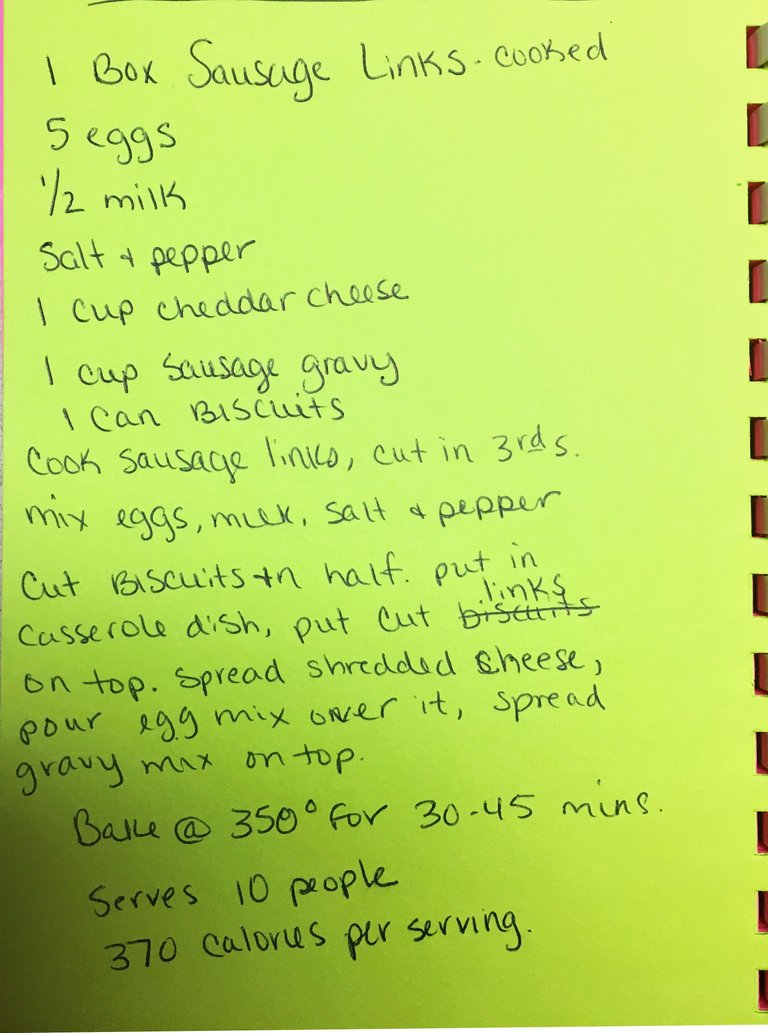 1 Box Sausage Links - cooked
5 eggs
1/2 milk
Salt + pepper
1 cup cheddar cheese
1 cup sausage gravy
1 can Biscuits
Cook sausage links, cut in 3rds.
mix eggs, milk, salt + pepper
Cut Biscuits in half. put in
casserole dish, put cut ~~biscuits~~ links
on top. Spread shredded cheese,
pour egg mix over it, spread
gravy mix on top.
Bake @ 350° for 30-45 mins.
Serves 10 people
370 calories per serving.